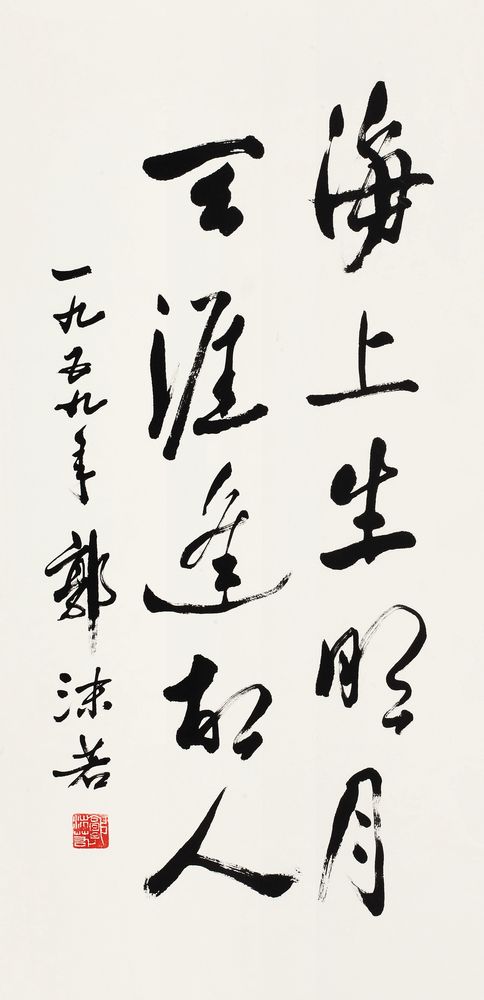 海上生明月
天涯逢故人
一九五九年 郭沫若
郭沫若